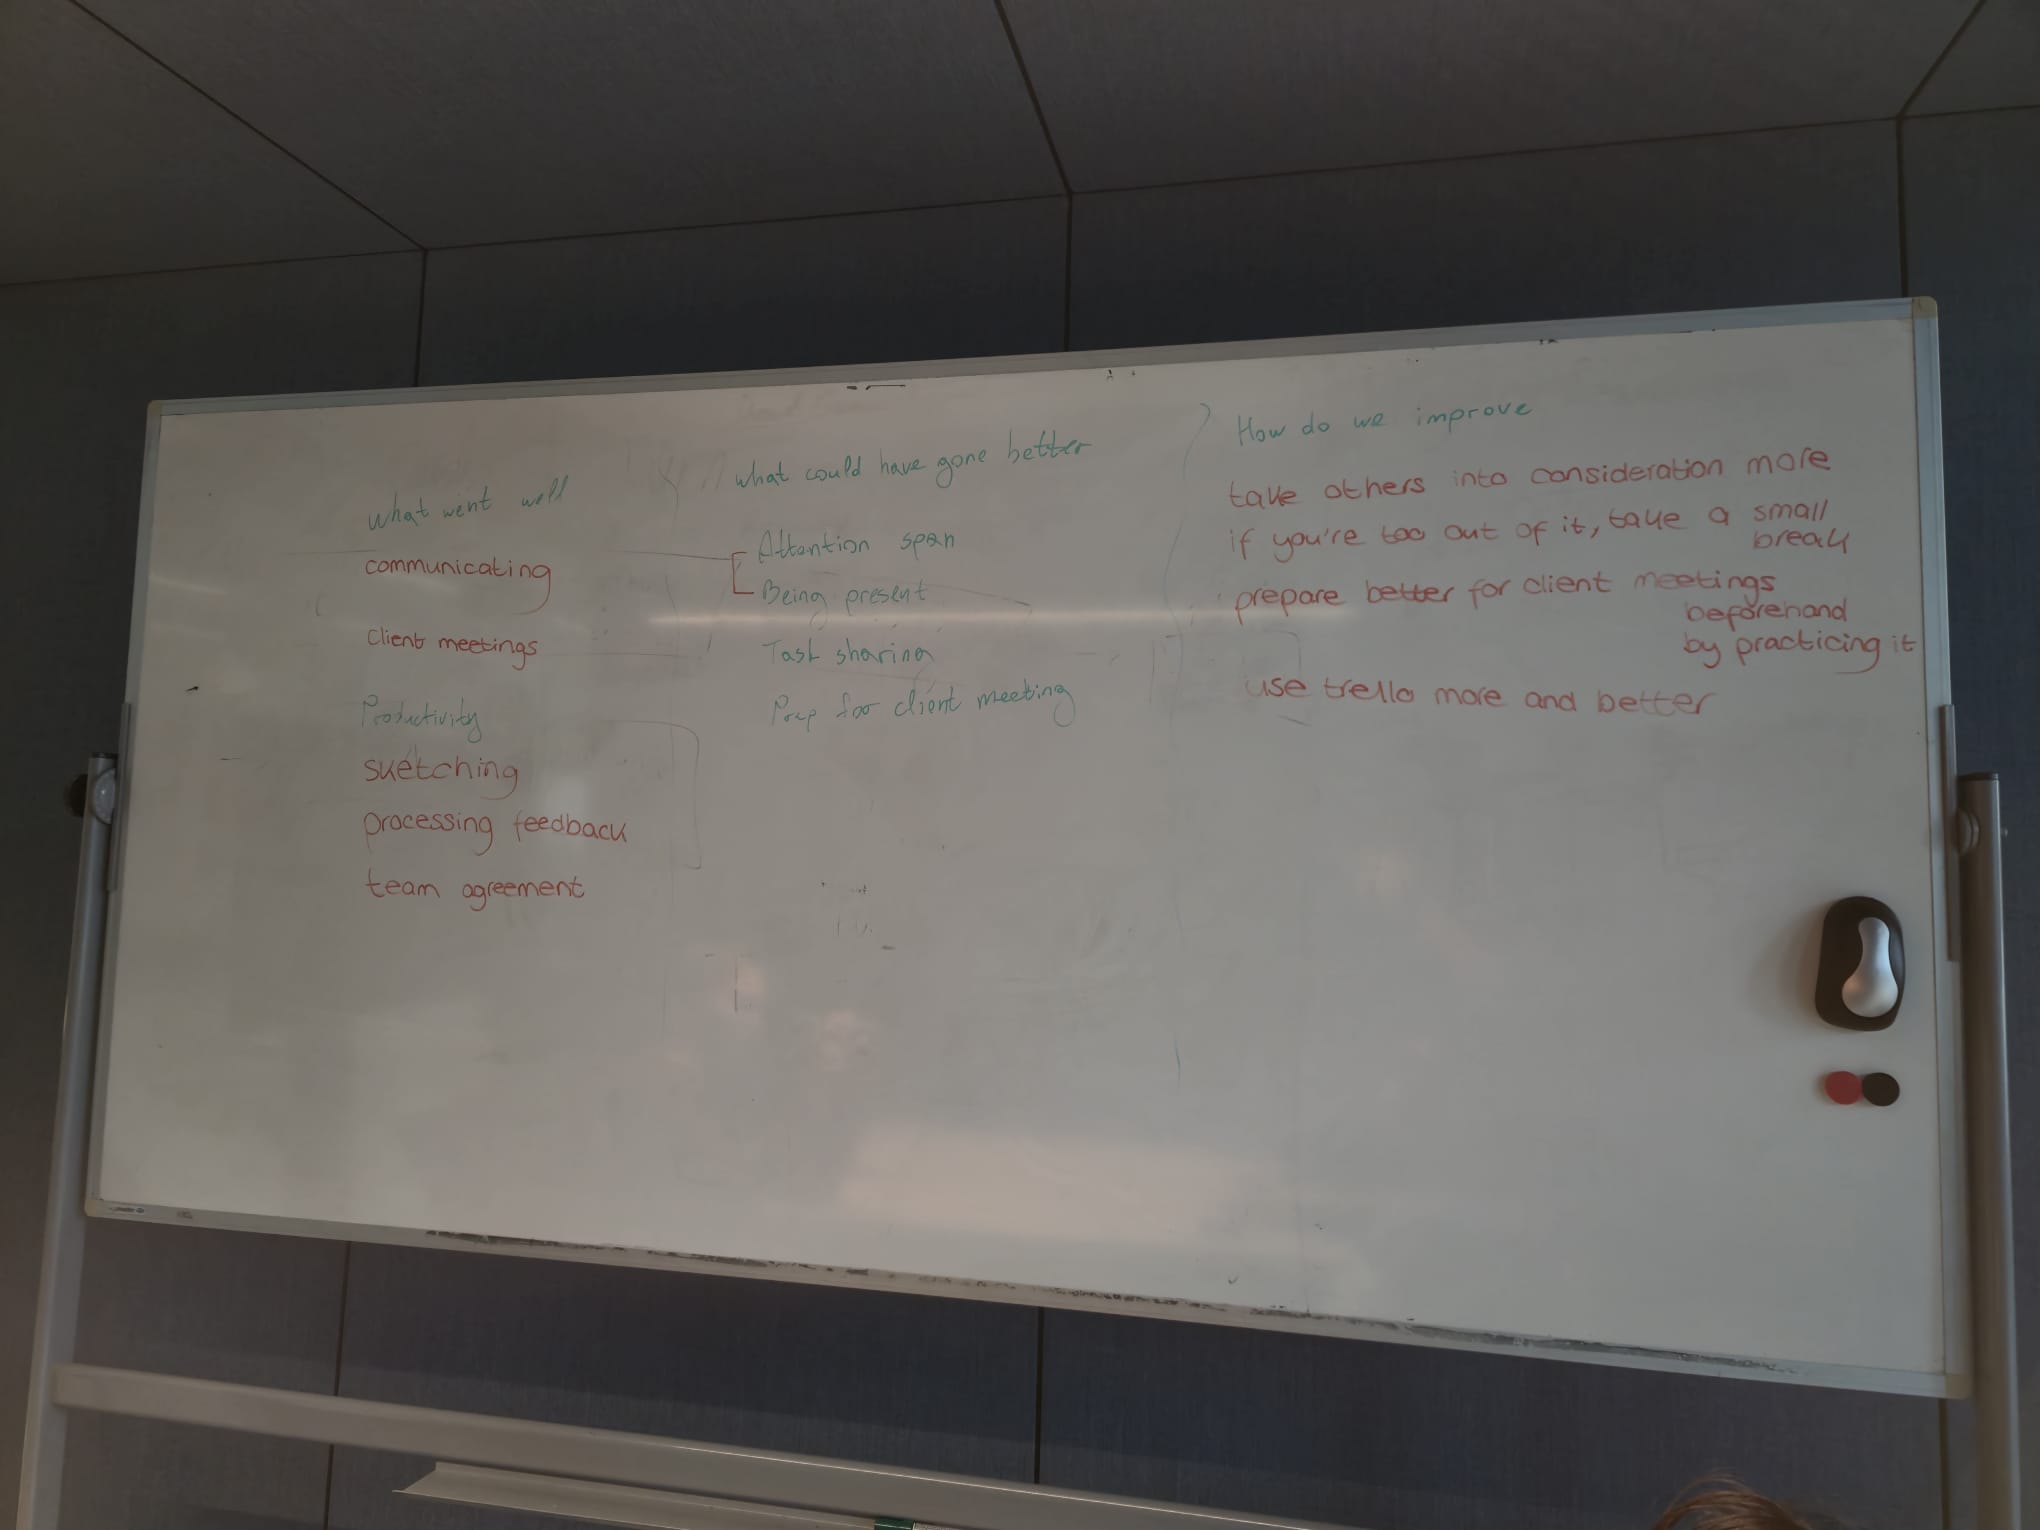 What went well
communicating
client meetings
Productivity
sketching
processing feedback
team agreement
what could have gone better
Attention span
Being present
Task sharing
Prep for client meeting
How do we improve
take others into consideration more
if you're too out of it, take a small
break
prepare better for client meetings
beforehand
by practicing it
use trello more and better